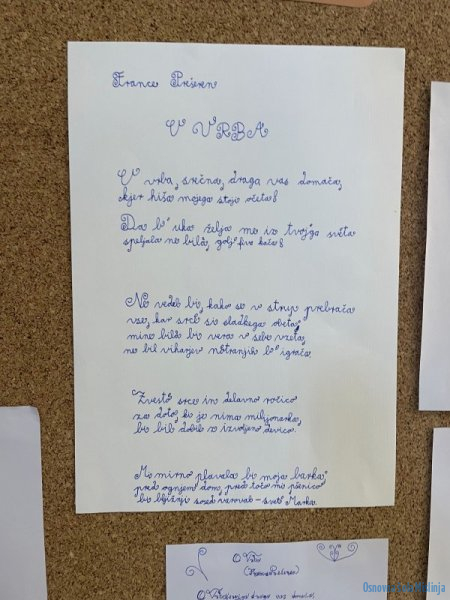 France Prešeren
O VRBA
O vrba, srečna, draga vas domača,
kjer hiša mojega stoji očeta!
Da b' uka želja me iz tvojga svéta
speljala ne bila, golj'fiva kača!
Ne vedel bi, kako se v strup prebrača
vse, kar srcé si sladkega obeta;
mi ne bila bi vera v sebe vzeta,
ne bil viharjev nótranjih b' igrača.
Zvestó srce in delavno ročico
za doto, ki je nima milijonarka,
bi bil dobil z izvoljeno devico.
Mi mirno plavala bi moja barka,
pred ognjem dom, pred točo mi pšenico
bi bližnji sosed varoval – sveti Marka.
O Vrba
(France Prešeren)
O Vrba, srečna draga vas domača,
Osnovna